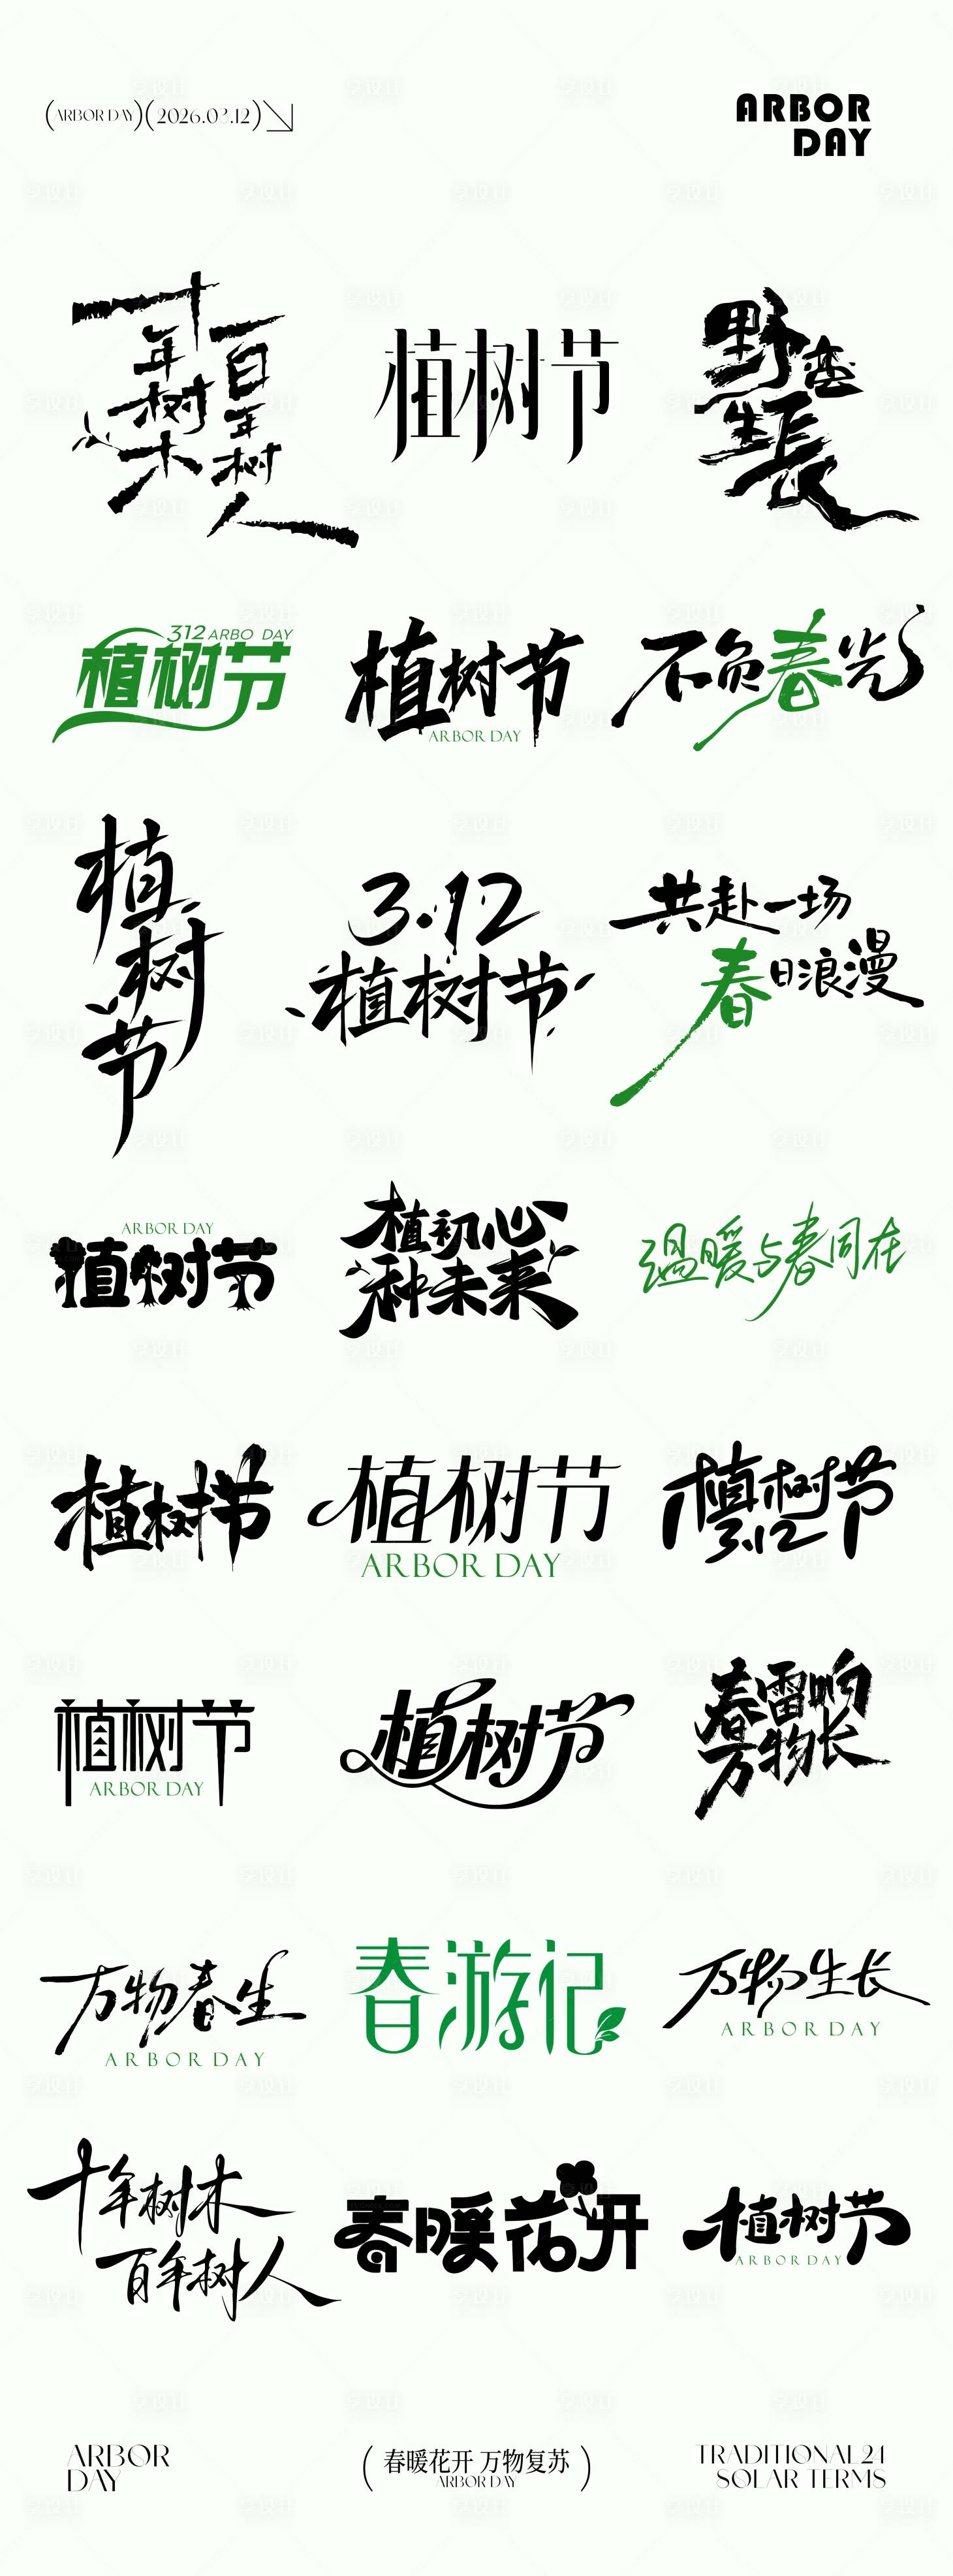 (ARBOR DAY)(2026.03.12)
ARBOR
DAY
十年树木
百年树人
植树节
野蛮生長
312 ARBO DAY
植树节
植树节
ARBOR DAY
不负春光
植树节
3.12
植树节
共赴一场
春日浪漫
ARBOR DAY
植树节
植初心
种未来
温暖与春同在
植树节
植树节
ARBOR DAY
植树节
3.12
植树节
ARBOR DAY
植树节
春雷响
万物长
万物春生
ARBOR DAY
春游记
万物生长
ARBOR DAY
十年树木
百年树人
春暖花开
植树节
ARBOR DAY
ARBOR
DAY
(春暖花开 万物复苏)
ARBOR DAY
TRADITIONAL 24
SOLAR TERMS